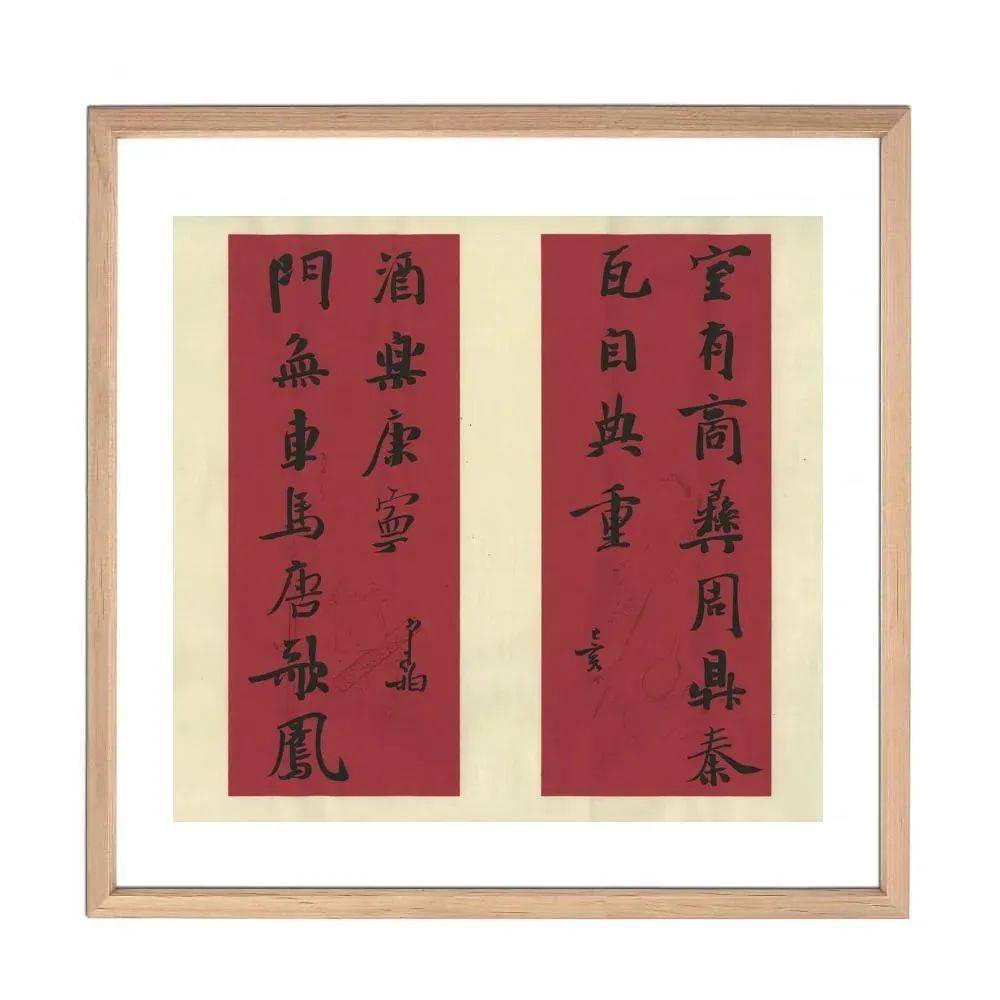 室有商彝周鼎秦
瓦自典重
己亥
門無車馬唐歌鳳
酒樂康寧